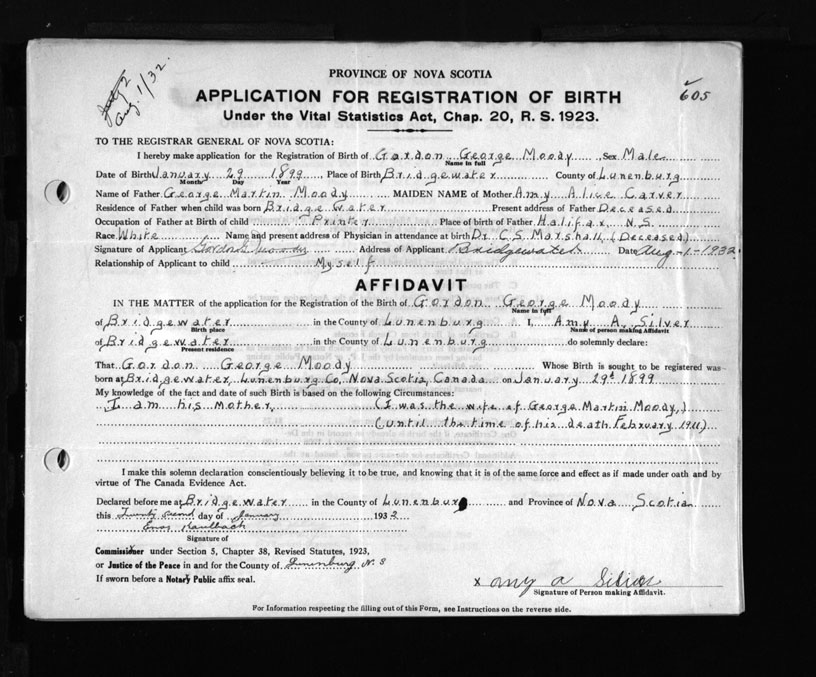 Aug. 1/32.
605
PROVINCE OF NOVA SCOTIA
APPLICATION FOR REGISTRATION OF BIRTH
Under the Vital Statistics Act, Chap. 20, R. S. 1923.
TO THE REGISTRAR GENERAL OF NOVA SCOTIA:
I hereby make application for the Registration of Birth of Gordon George Moody Sex Male
Name in full
Date of Birth January 29 1899 Place of Birth Bridgewater County of Lunenburg
Month Day Year
Name of Father George Martin Moody MAIDEN NAME of Mother Amy Alice Carver
Residence of Father when child was born Bridgewater Present address of Father Deceased
Occupation of Father at Birth of child Printer Place of birth of Father Halifax N.S.
Race White Name and present address of Physician in attendance at birth Dr. C.S. Marshall (Deceased)
Signature of Applicant Gordon G Moody Address of Applicant Bridgewater Date Aug-1-1932
Relationship of Applicant to child Myself
AFFIDAVIT
IN THE MATTER of the application for the Registration of the Birth of Gordon George Moody
Name in full
of Bridgewater in the County of Lunenburg I, Amy A. Silver
Birth place Name of person making Affidavit
of Bridgewater in the County of Lunenburg do solemnly declare:
Present residence
That Gordon George Moody Whose Birth is sought to be registered was
born at Bridgewater, Lunenburg Co, Nova Scotia, Canada on January 29th 1899
My knowledge of the fact and date of such Birth is based on the following Circumstances:
I am his mother, (I was the wife of George Martin Moody,)
(until the time of his death February 1911)
I make this solemn declaration conscientiously believing it to be true, and knowing that it is of the same force and effect as if made under oath and by
virtue of The Canada Evidence Act.
Declared before me at Bridgewater in the County of Lunenburg and Province of Nova Scotia
this Twenty second day of January 1932
Enos Kaulbach
Signature of
Commissioner under Section 5, Chapter 38, Revised Statutes, 1923,
or Justice of the Peace in and for the County of Lunenburg N. S
If sworn before a Notary Public affix seal.
x Amy A Silver
Signature of Person making Affidavit.
For Information respecting the filling out of this Form, see Instructions on the reverse side.